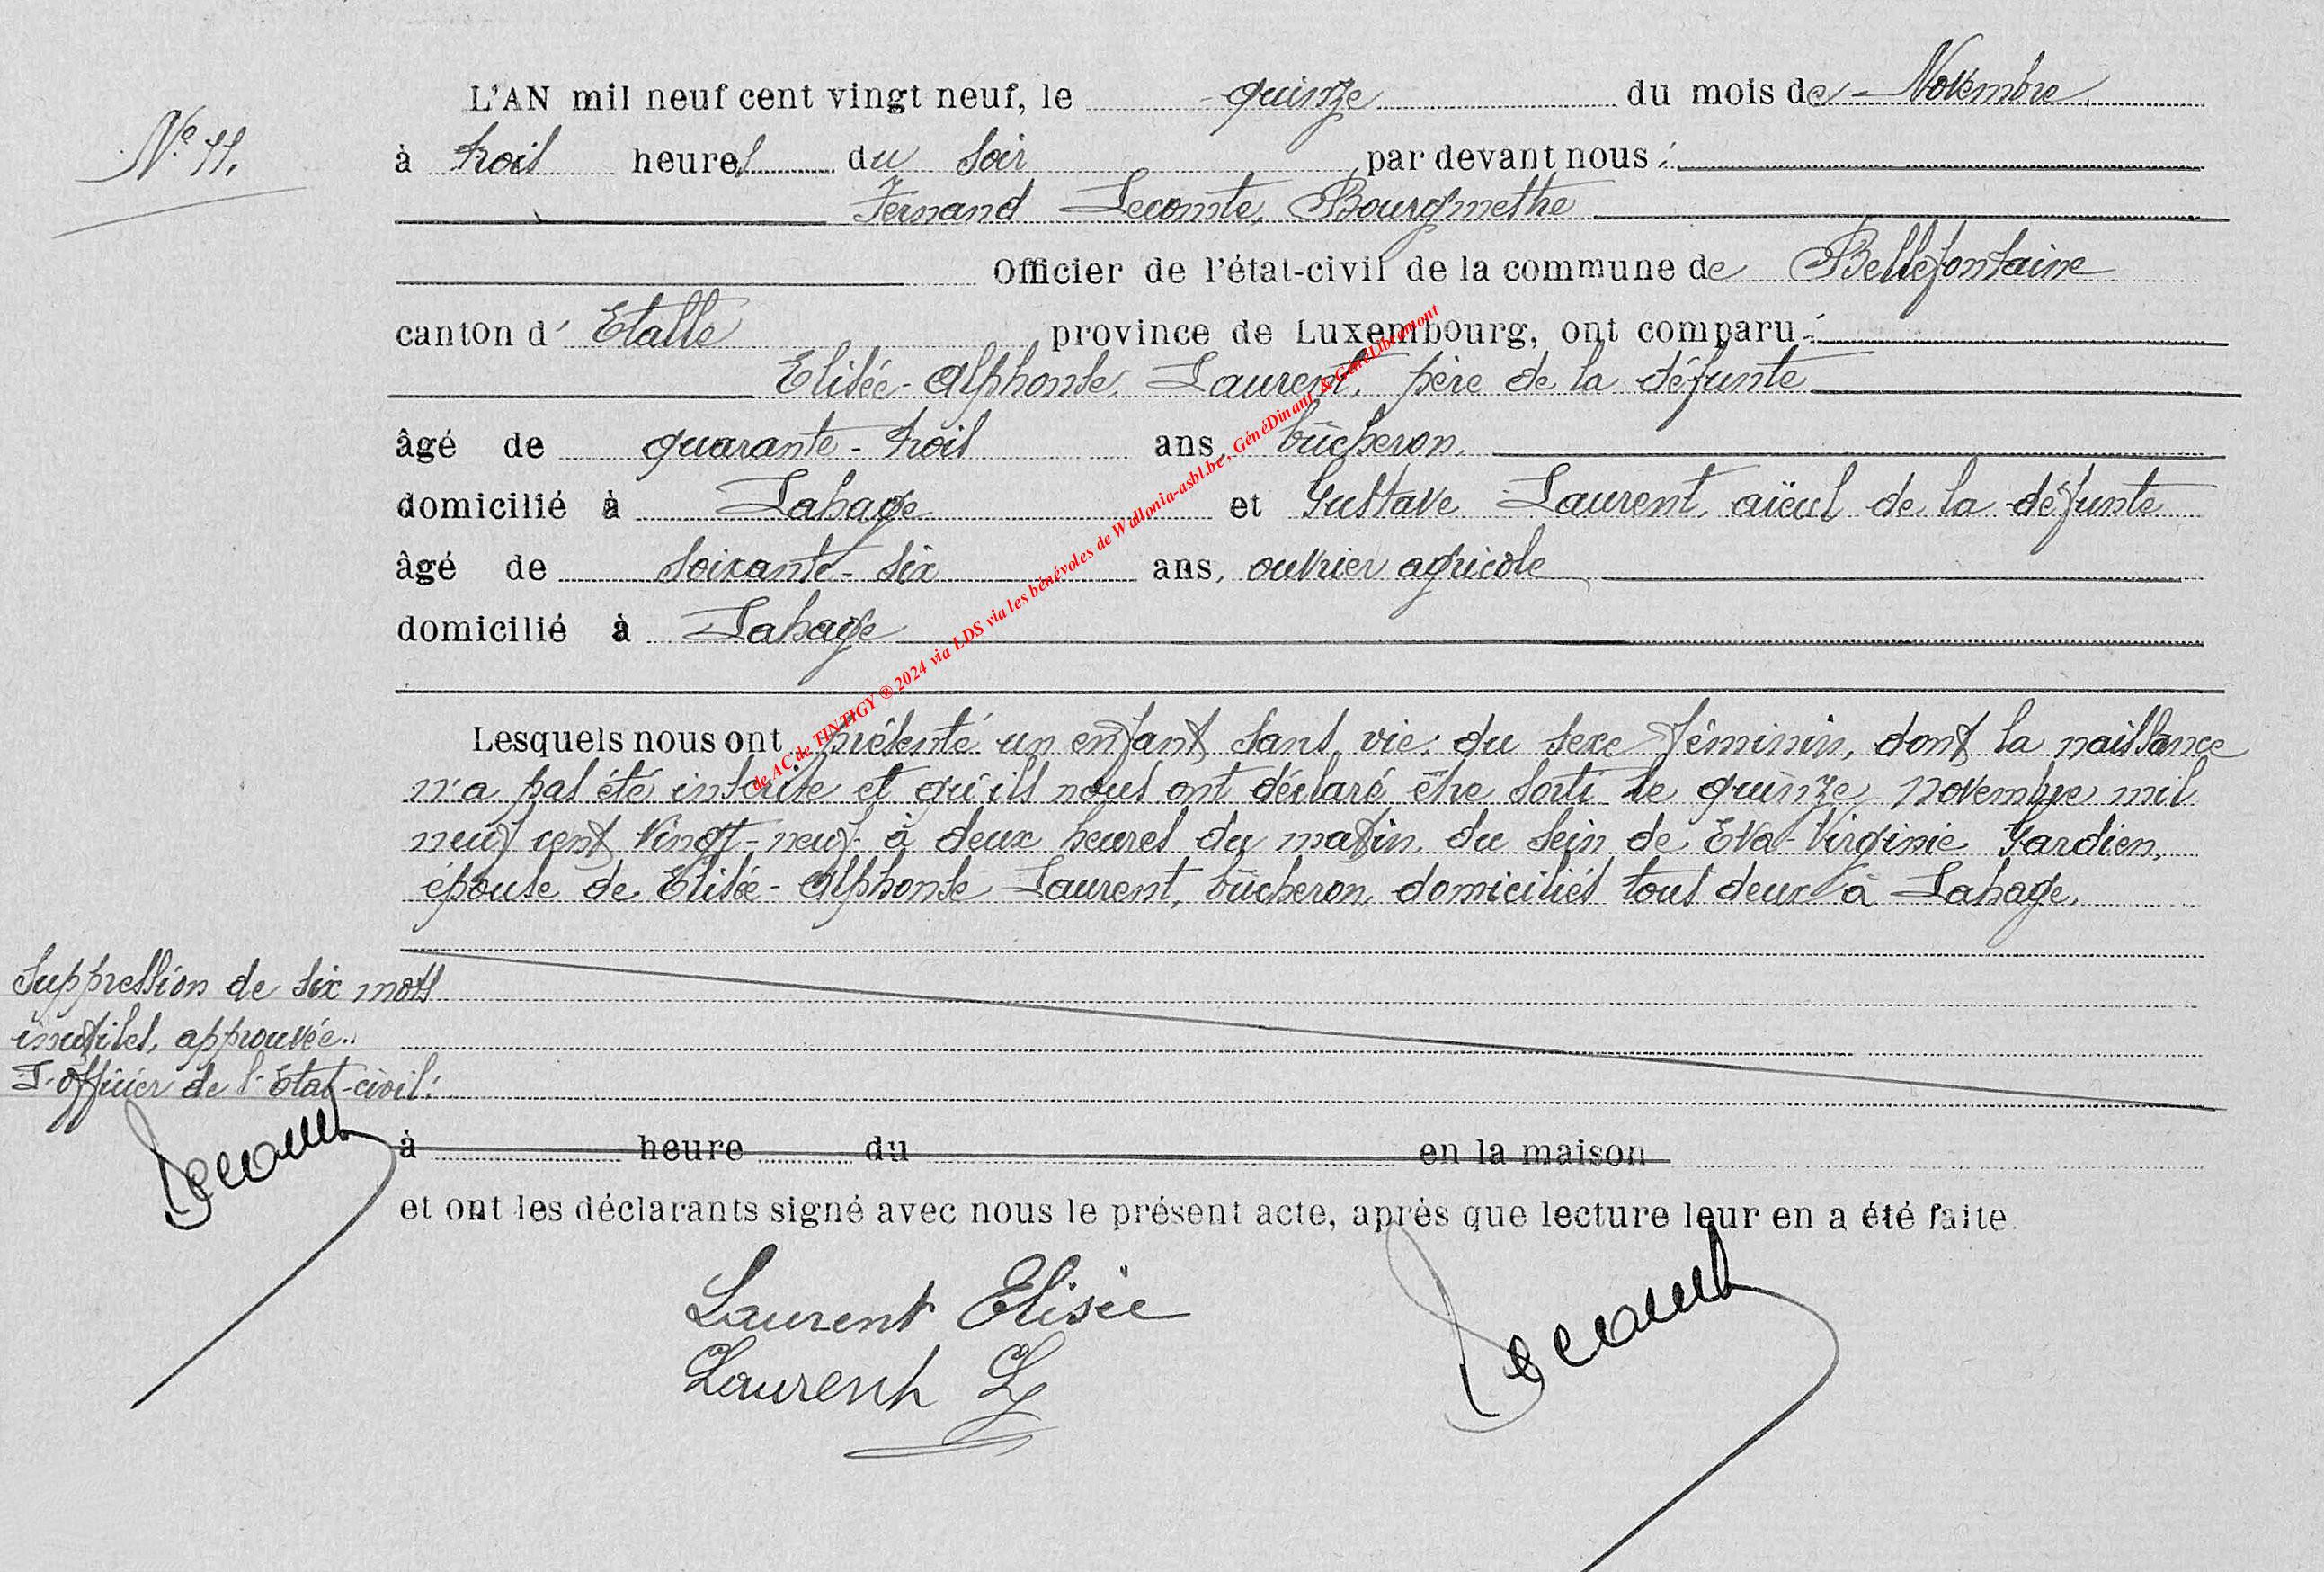 L'AN mil neuf cent vingt neuf, le quinze du mois de Novembre
N° 11.
à trois heures du soir par devant nous :
Fernand Lecomte, Bourgmestre
Officier de l'état-civil de la commune de Bellefontaine
canton d' Etalle province de Luxembourg, ont comparu :
Elisée-Alphonse Laurent, père de la défunte
âgé de quarante-trois ans, bûcheron,
domicilié à Lahage et Gustave Laurent, aïeul de la défunte
âgé de soixante-six ans, ouvrier agricole
domicilié à Lahage
Lesquels nous ont présenté un enfant sans vie, du sexe féminin, dont la naissance
n'a pas été inscrite et qu'ils nous ont déclaré être sorti le quinze novembre mil
neuf cent vingt-neuf à deux heures du matin, du sein de Eva-Virginie Gardien,
épouse de Elisée-Alphonse Laurent, bûcheron, domiciliés tous deux à Lahage.
Suppression de six mots
inutiles, approuvée.
L'officier de l'Etat-civil :
Lecomte
à heure du en la maison
et ont les déclarants signé avec nous le présent acte, après que lecture leur en a été faite.
Laurent Elisée
Laurent G
Lecomte
de AC de TINTIGY ® 2024 via LDS via les bénévoles de Wallonia-asbl.be, GénéDinant & GénéLibramont